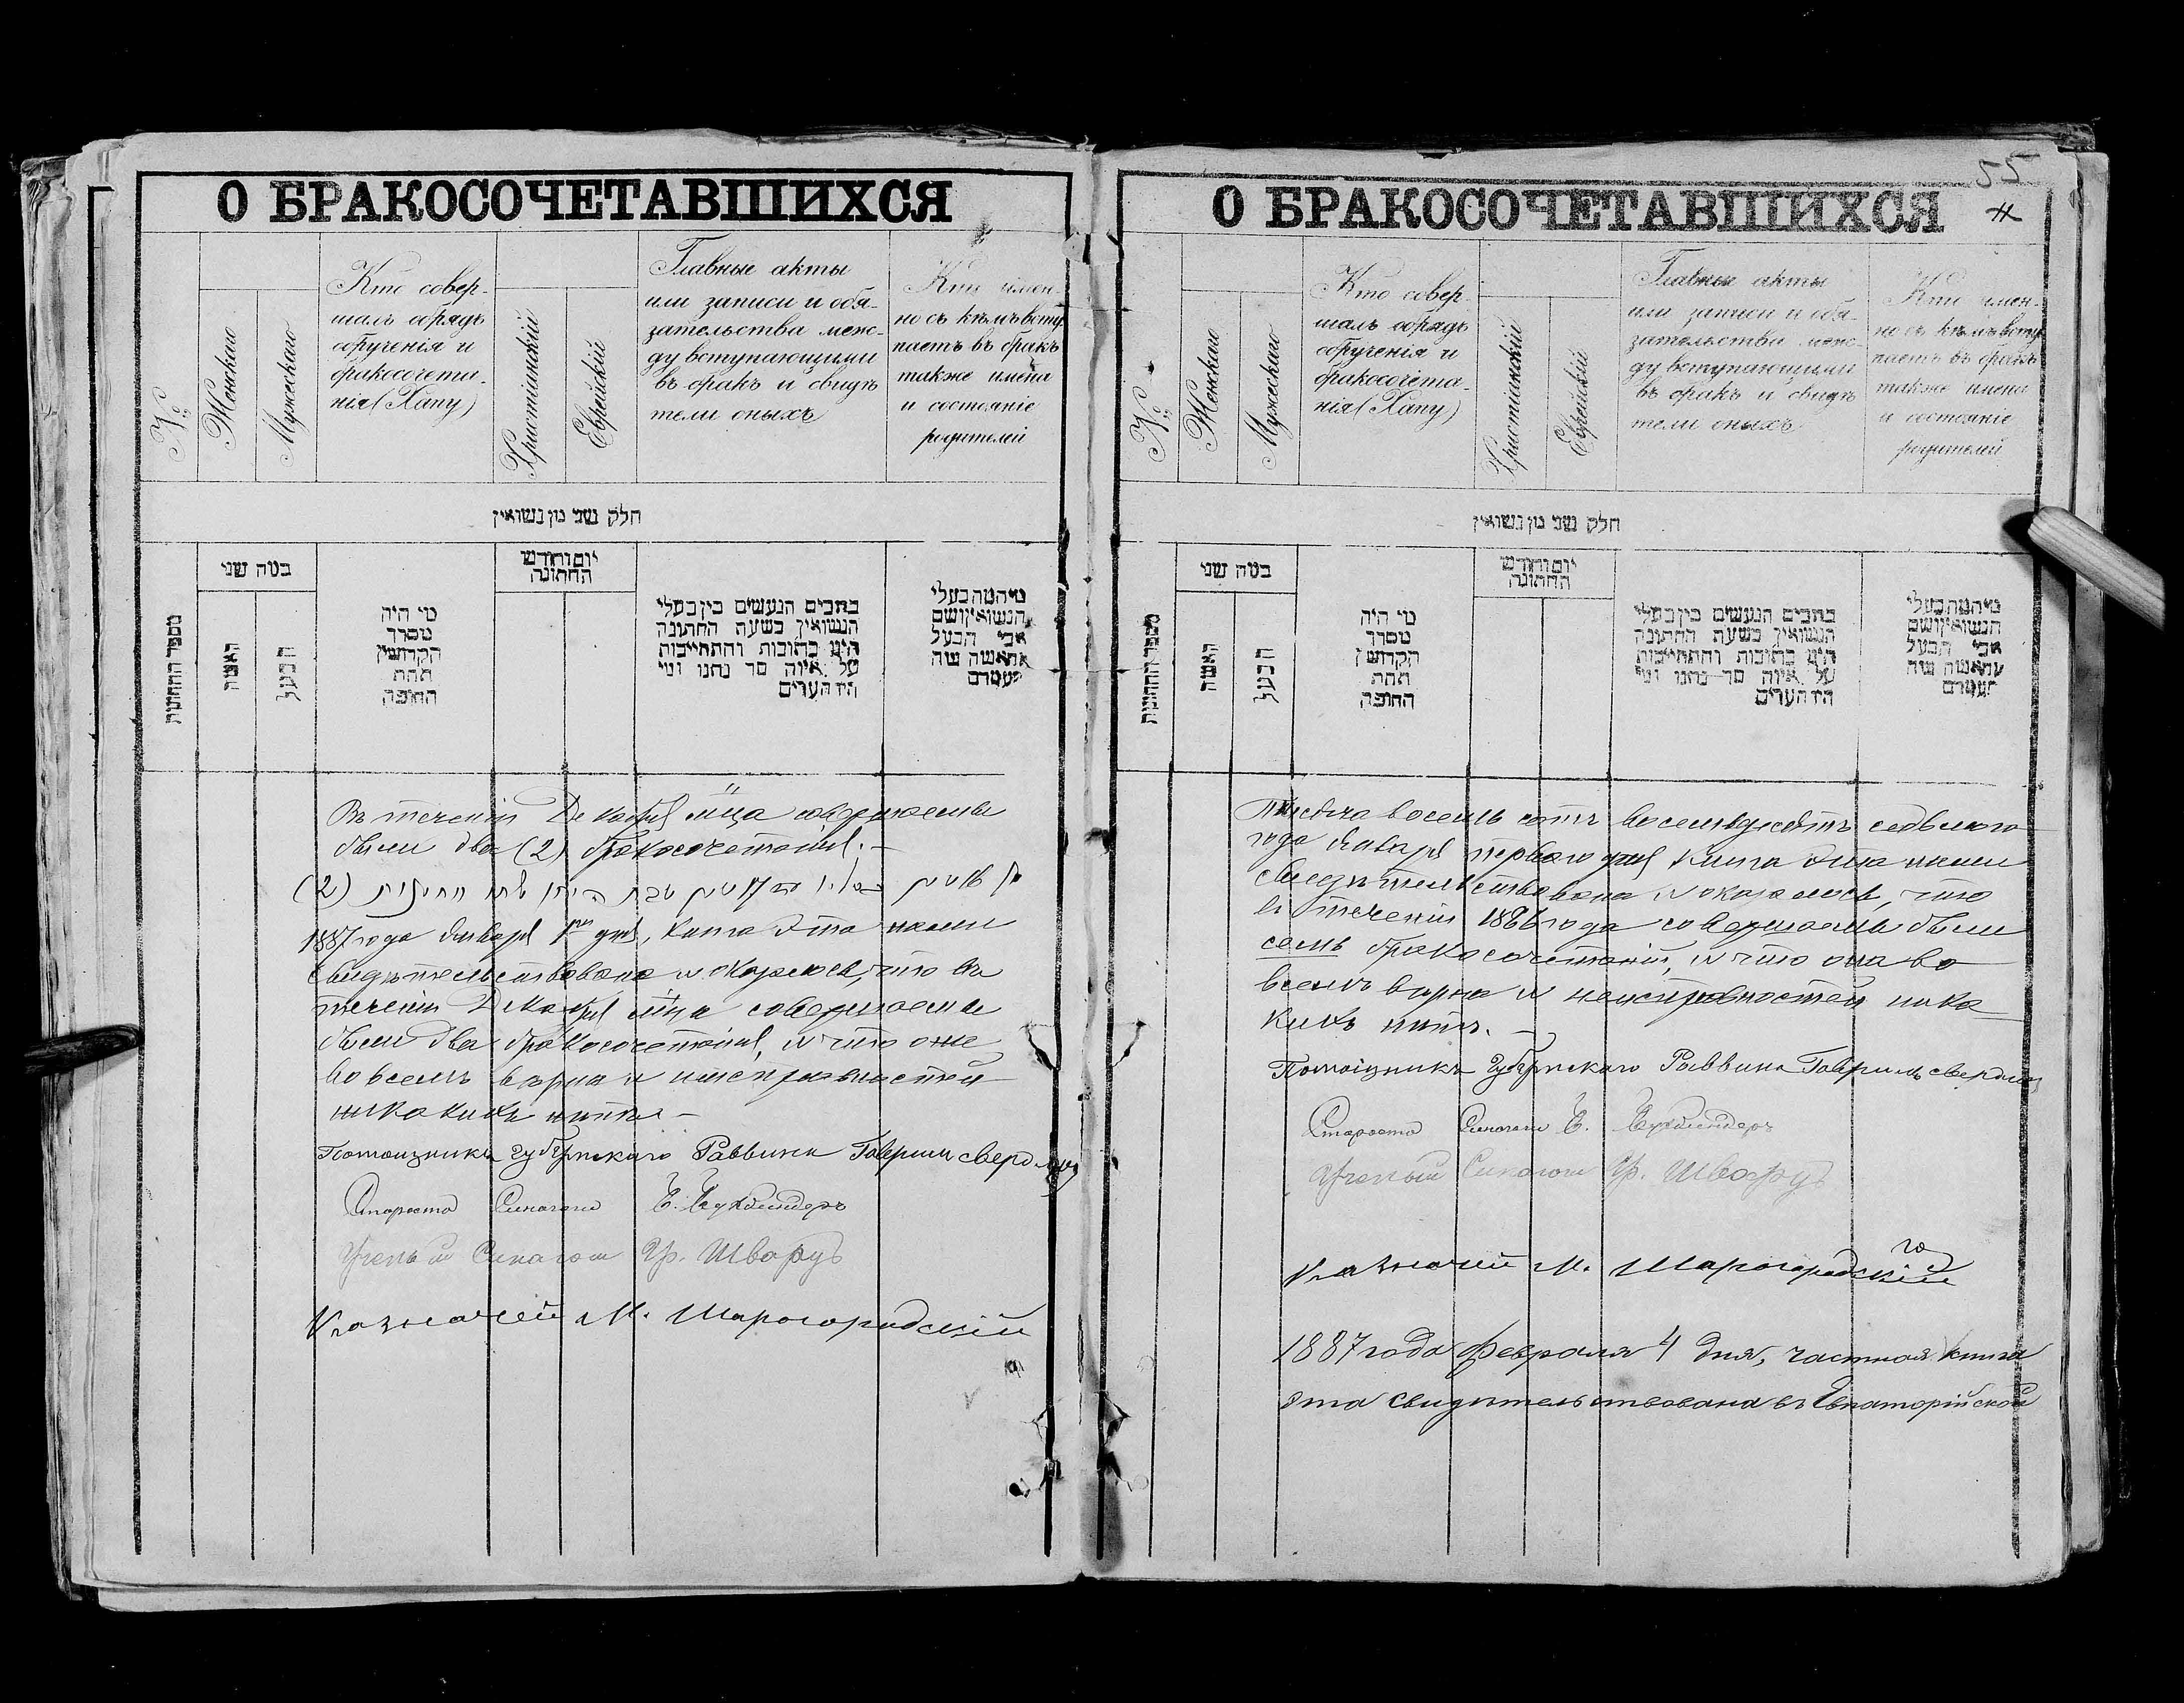 О БРАКОСОЧЕТАВШИХСЯ
№
Женскаго
Мужескаго
Кто совер-
шалъ обрядъ
обрученія и
бракосочета-
нія (Хапу)
Христіанскій
Еврейскій
Главные акты
или записи и обя-
зательства меж-
ду вступающими
въ бракъ и свидѣ
тели оныхъ
Кто имен-
но съ кѣмъ всту
паетъ въ бракъ
также имена
и состояніе
родителей
חלק שני מן נשואין
מספר החתונות
כמה שני
האשה
הבעל
מי היה
מסדר
הקדושין
תחת
החופה
יום וחודש
החתונה
כתבים הנעשים בין בעלי
הנשואין בשעת החתונה
היינו כתובות והתחייבות
על איזה סך נתנו ומי
היו העדים
הנשואין ושם
אבי הבעל
Въ теченіи Декабря мѣца совершены
были два (2) бракосочетанія. —
(2)
1887 года Января 1го дня, книга эта нами
свидѣтельствована и оказалось, что въ
теченіи Декабря мѣца совершены
были два бракосочетанія, и что она
во всемъ вѣрна и неисправностей
никакихъ нѣтъ. —
Помощникъ Губернскаго Раввина Гавріилъ Свердловъ
Староста Синагоги Б. Букбиндеръ
Ученый Синагоги Ф. Шварцъ
Казначей М. Шарогородскій
55
О БРАКОСОЧЕТАВШИХСЯ
№
Женскаго
Мужескаго
Кто совер-
шалъ обрядъ
обрученія и
бракосочета-
нія (Хапу)
Христіанскій
Еврейскій
Главные акты
или записи и обя-
зательства меж-
ду вступающими
въ бракъ и свидѣ
тели оныхъ
Кто имен-
но съ кѣмъ всту
паетъ въ бракъ
также имена
и состояніе
родителей
חלק שני מן נשואין
מספר החתונות
כמה שני
האשה
הבעל
מי היה
מסדר
הקדושין
תחת
החופה
יום וחודש
החתונה
כתבים הנעשים בין בעלי
הנשואין בשעת החתונה
היינו כתובות והתחייבות
על איזה סך נתנו ומי
היו העדים
הנשואין ושם
אבי הבעל
Тысяча восемь сотъ восемьдесятъ седьмого
года Января перваго дня книга эта нами
свидѣтельствована и оказалось, что
въ теченіи 1886 года совершены были
семь бракосочетаній, и что она во
всемъ вѣрна и неисправностей ника
кихъ нѣтъ. —
Помощникъ Губернскаго Раввина Гавріилъ Свердловъ
Староста Синагоги Б. Букбиндеръ
Ученый Синагоги Ф. Шварцъ
Казначей М. Шарогородскій
1887 года Февраля 4 дня, частная книга
эта свидѣтельствована въ Евпаторійской